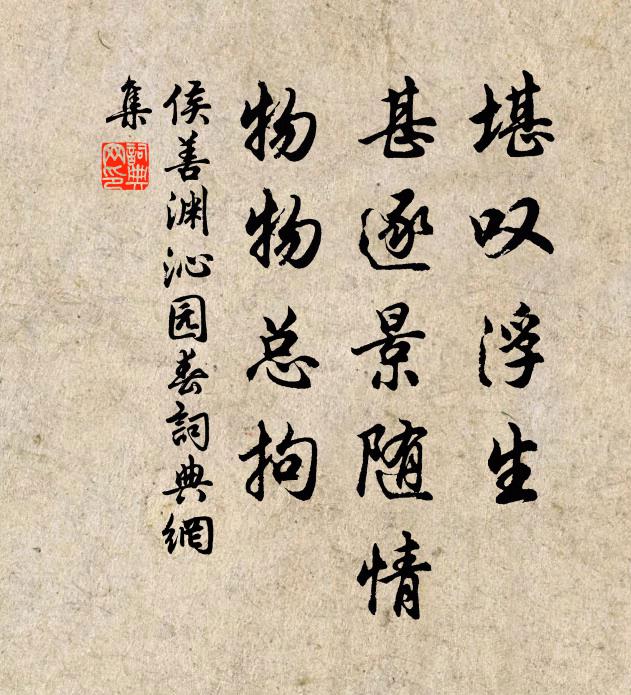 堪叹浮生
甚逐景随情
物物总拘
侯善渊沁园春詞典網
集
詞典网印